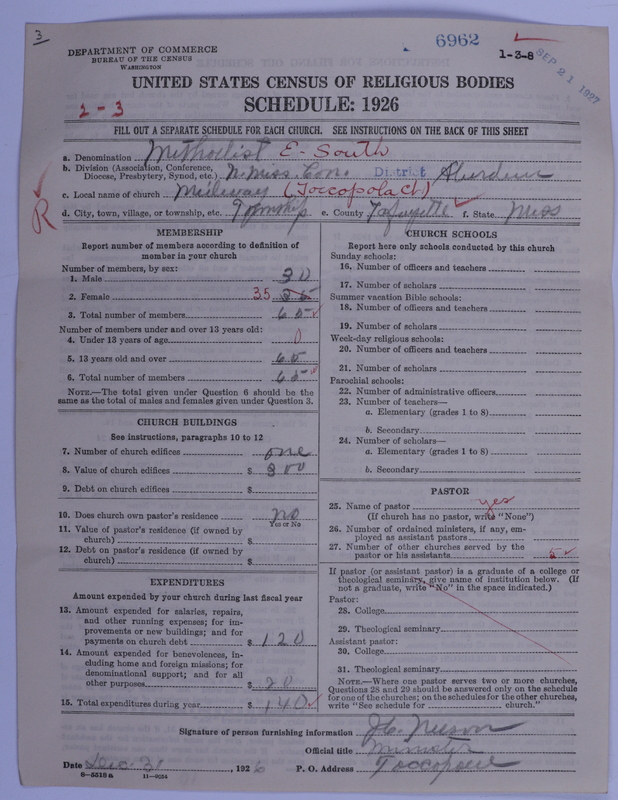 3
DEPARTMENT OF COMMERCE
BUREAU OF THE CENSUS
WASHINGTON
6962
1-3-8
SEP 21 1927
UNITED STATES CENSUS OF RELIGIOUS BODIES
2-3
SCHEDULE: 1926
FILL OUT A SEPARATE SCHEDULE FOR EACH CHURCH. SEE INSTRUCTIONS ON THE BACK OF THIS SHEET
a. Denomination Methodist E. South
b. Division (Association, Conference, Diocese, Presbytery, Synod, etc.) N. Miss. Con. District Aberdeen
c. Local name of church Midway (Toccopola Ct)
R
d. City, town, village, or township, etc. Township e. County Lafayette f. State Miss
MEMBERSHIP
Report number of members according to definition of
member in your church
Number of members, by sex:
1. Male 30
2. Female 35
3. Total number of members 65
Number of members under and over 13 years old:
4. Under 13 years of age 0
5. 13 years old and over 65
6. Total number of members 65
NOTE.—The total given under Question 6 should be the
same as the total of males and females given under Question 3.
CHURCH BUILDINGS
See instructions, paragraphs 10 to 12
7. Number of church edifices one
8. Value of church edifices $ 300
9. Debt on church edifices $
10. Does church own pastor's residence no
Yes or No
11. Value of pastor's residence (if owned by
church) $
12. Debt on pastor's residence (if owned by
church) $
EXPENDITURES
Amount expended by your church during last fiscal year
13. Amount expended for salaries, repairs,
and other running expenses; for im-
provements or new buildings; and for
payments on church debt $ 120
14. Amount expended for benevolences, in-
cluding home and foreign missions; for
denominational support; and for all
other purposes $ 20
15. Total expenditures during year $ 140
CHURCH SCHOOLS
Report here only schools conducted by this church
Sunday schools:
16. Number of officers and teachers
17. Number of scholars
Summer vacation Bible schools:
18. Number of officers and teachers
19. Number of scholars
Week-day religious schools:
20. Number of officers and teachers
21. Number of scholars
Parochial schools:
22. Number of administrative officers
23. Number of teachers—
a. Elementary (grades 1 to 8)
b. Secondary
24. Number of scholars—
a. Elementary (grades 1 to 8)
b. Secondary
PASTOR
25. Name of pastor yes
(If church has no pastor, write "None")
26. Number of ordained ministers, if any, em-
ployed as assistant pastors
27. Number of other churches served by the
pastor or his assistants 5
If pastor (or assistant pastor) is a graduate of a college or
theological seminary, give name of institution below. (If
not a graduate, write "No" in the space indicated.)
Pastor:
28. College
29. Theological seminary
Assistant pastor:
30. College
31. Theological seminary
NOTE.—Where one pastor serves two or more churches,
Questions 28 and 29 should be answered only on the schedule
for one of the churches; on the schedules for the other churches,
write "See schedule for church."
Signature of person furnishing information
Official title Minister
Date Dec. 31, 1926 P. O. Address
8-5518a 11-9034